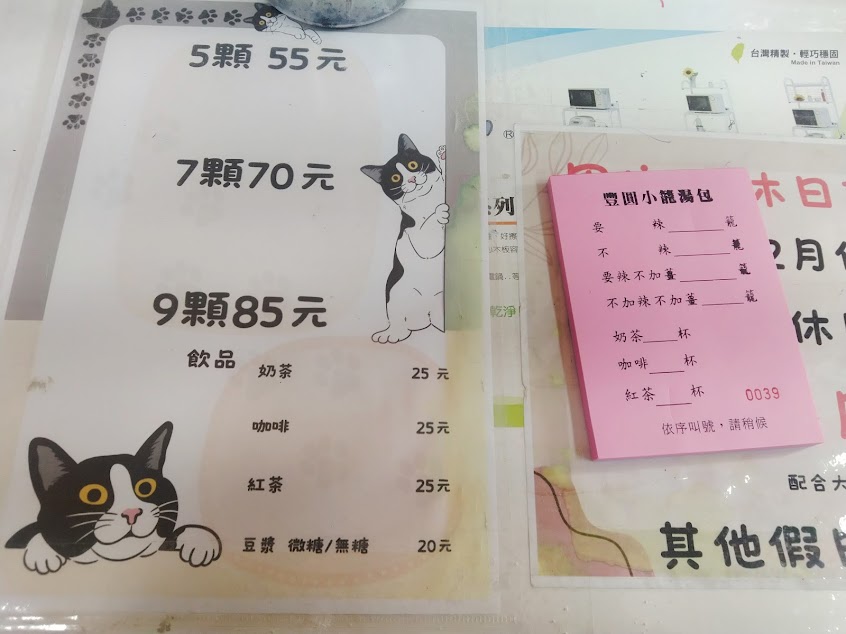 5顆 55元
7顆70元
9顆85元
飲品
奶茶 25元
咖啡 25元
紅茶 25元
豆漿 微糖/無糖 20元
台灣精製・輕巧穩固
Made in Taiwan
®
系列
乾淨
豐圓小籠湯包
要 辣______籠
不 辣______籠
要辣不加薑______籠
不加辣不加薑______籠
奶茶____杯
咖啡____杯
紅茶____杯
0039
依序叫號，請稍候
休日
2月
休
配合大
其他假